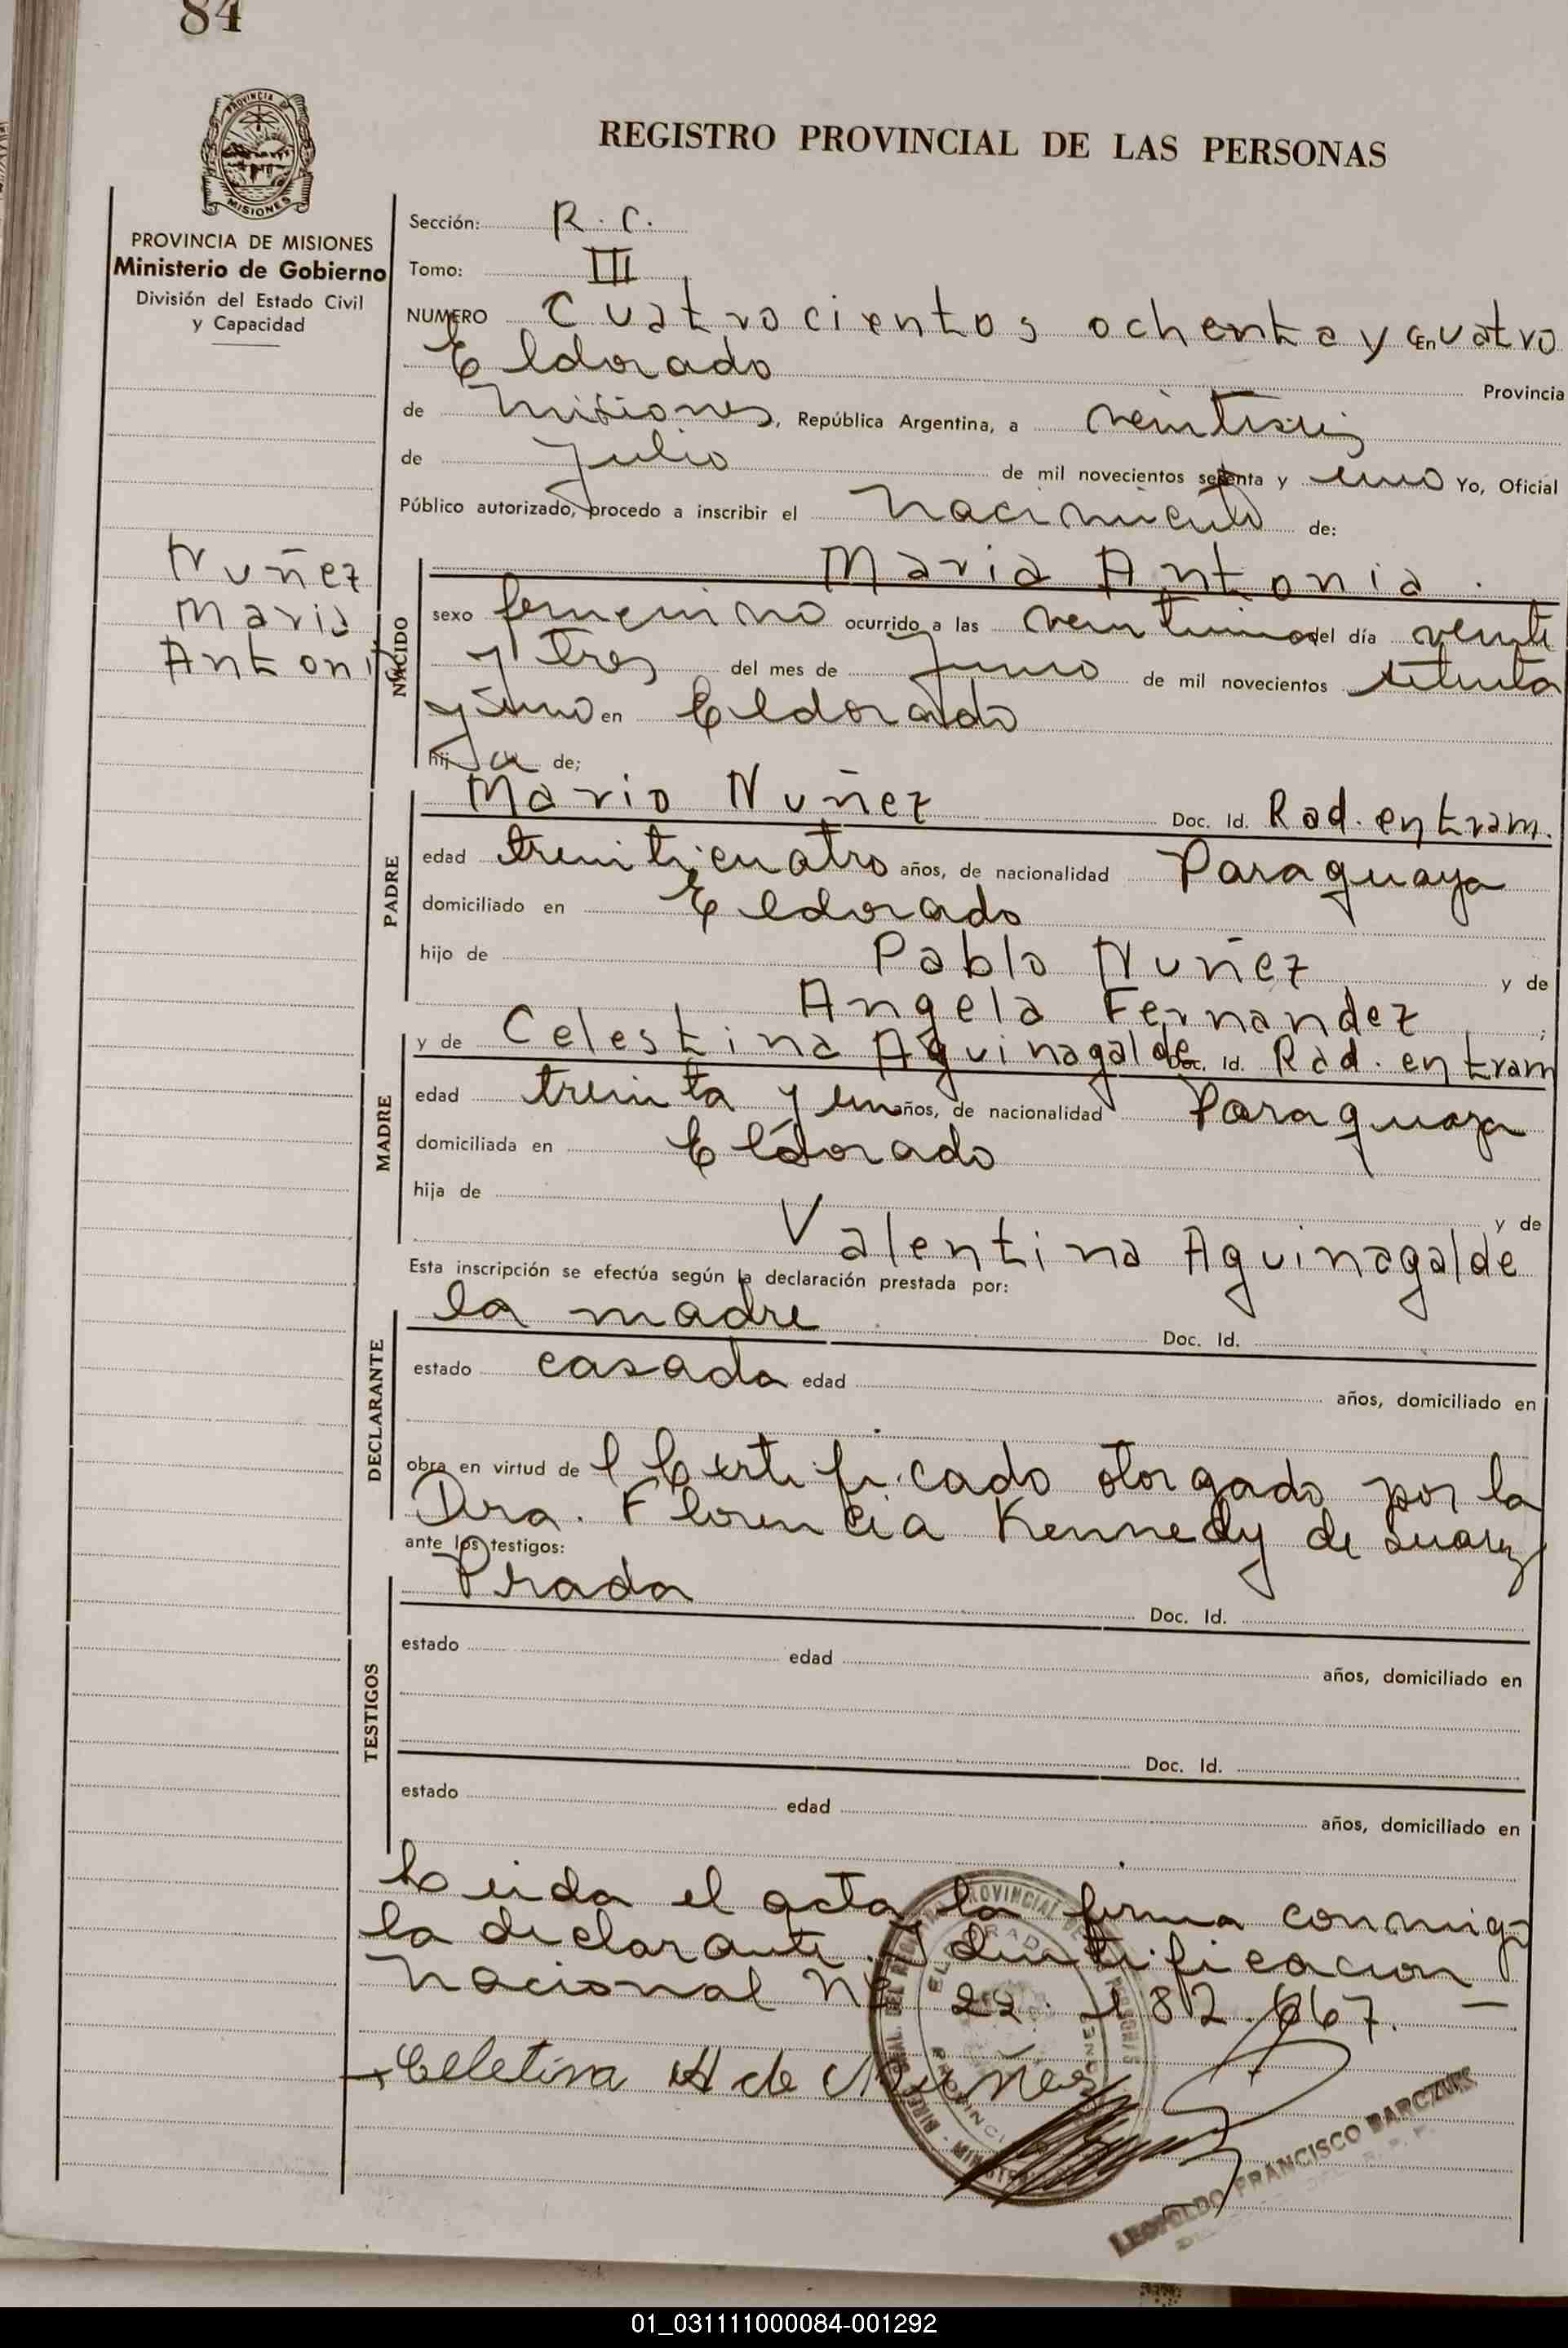 84
PROVINCIA DE
MISIONES
REGISTRO PROVINCIAL DE LAS PERSONAS
PROVINCIA DE MISIONES
Ministerio de Gobierno
División del Estado Civil
y Capacidad
Nuñez
Maria
Antonia
Sección: R. C.
Tomo: III
NUMERO Cuatrocientos ochenta y cuatro En
Eldorado Provincia
de Misiones, República Argentina, a veintiseis
de Julio de mil novecientos setenta y uno Yo, Oficial
Público autorizado, procedo a inscribir el nacimiento de:
NACIDO
Maria Antonia.
sexo femenino ocurrido a las veintiuna del día veinti
y tres del mes de Junio de mil novecientos setenta
y uno en Eldorado
hija de;
PADRE
Mario Nuñez Doc. Id. Rad. en tram.
edad treinticuatro años, de nacionalidad Paraguaya
domiciliado en Eldorado
hijo de Pablo Nuñez y de
Angela Fernandez ;
MADRE
y de Celestina Aguinagalde Doc. Id. Rad. en tram
edad treinta y un años, de nacionalidad Paraguaya
domiciliada en Eldorado
hija de y de
Valentina Aguinagalde
Esta inscripción se efectúa según la declaración prestada por:
DECLARANTE
la madre Doc. Id.
estado casada edad años, domiciliado en
obra en virtud de l Certificado otorgado por la
Dra. Florencia Kennedy de Suarez
ante los testigos:
Prada
TESTIGOS
Doc. Id.
estado edad años, domiciliado en
Doc. Id.
estado edad años, domiciliado en
Leida el acta, la firma conmigo
la declarante. Identificacion
Nacional Nº 22. 182. 667. —
Celetina A de Nuñes
LEOPOLDO FRANCISCO BARCZUK
01_031111000084-001292